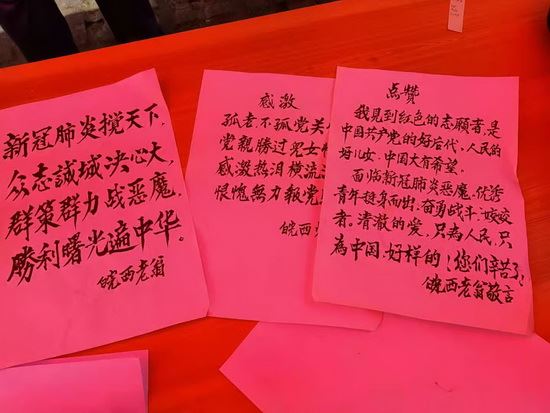 新冠肺炎搅天下,
众志誠城决心大,
群策群力战恶魔,
勝利曙光遍中华。
皖西老翁
感激
孤老不孤党关
党親勝过児女
感激热泪横流
恨愧無力報党
皖西
点赞
我見到红色的志願者,是
中国共产党的好后代,人民的
好儿女,中国大有希望。
面临新冠肺炎恶魔,优秀
青年挺身而出,奋勇战斗,姣姣
者。清澈的爱,只為人民,只
為中国,好样的!你们辛苦了!
皖西老翁敬言